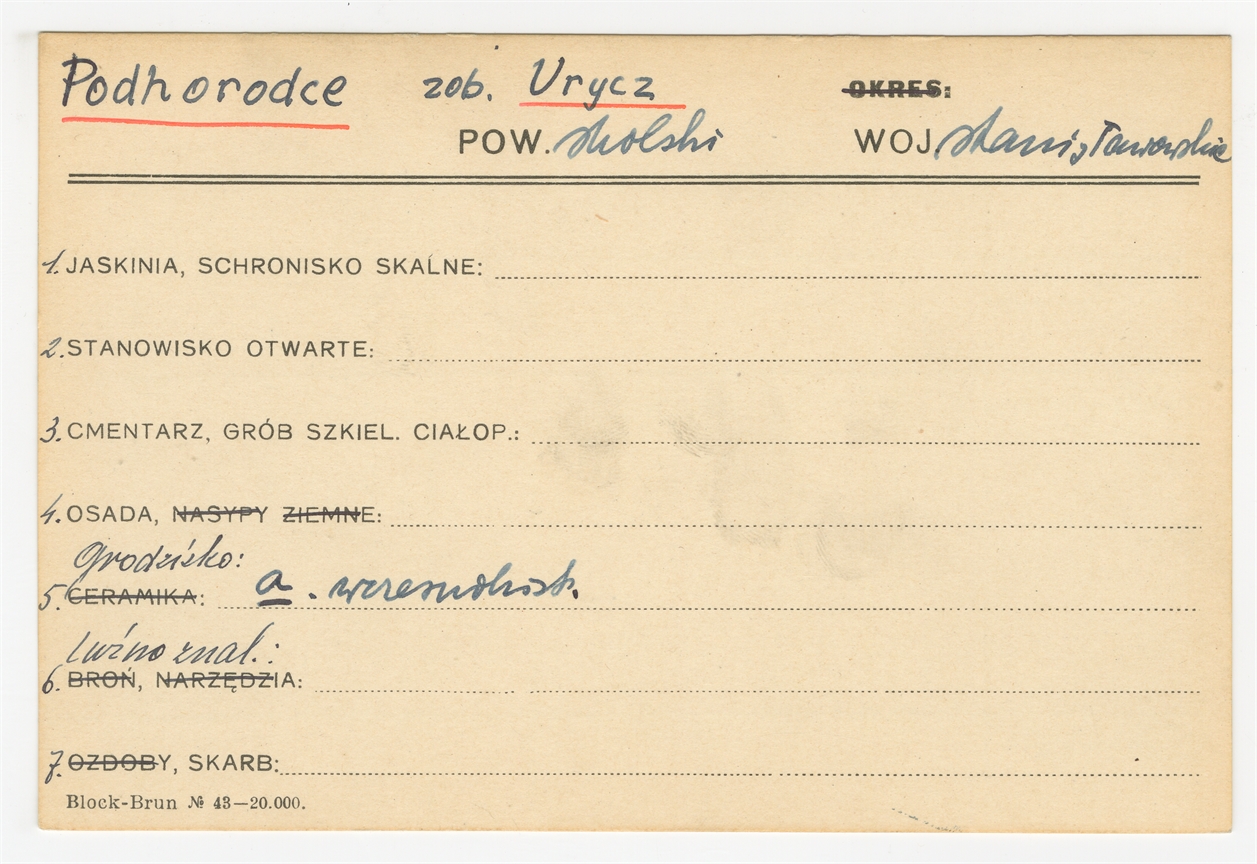 Podhorodce zob. Urycz OKRES:
POW. stolski WOJ. stanisławowskie
1. JASKINIA, SCHRONISKO SKALNE:
2. STANOWISKO OTWARTE:
3. CMENTARZ, GRÓB SZKIEL. CIAŁOP.:
4. OSADA, NASYPY ZIEMNE:
Grodzisko:
5. CERAMIKA: a.
Luźno znal.:
6. BROŃ, NARZĘDZIA:
7. OZDOBY, SKARB:
Block-Brun № 43—20.000.